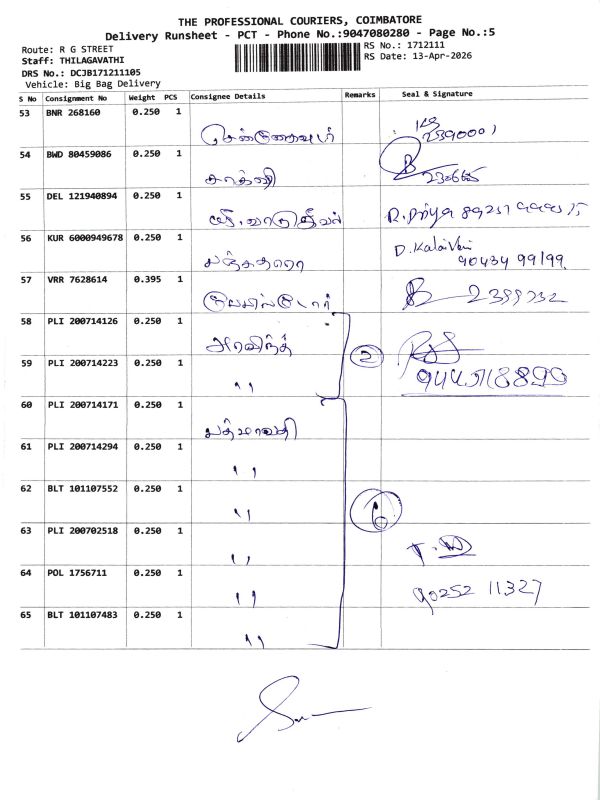 THE PROFESSIONAL COURIERS, COIMBATORE
Delivery Runsheet - PCT - Phone No.:9047080280 - Page No.:5
Route: R G STREET
RS No.: 1712111
Staff: THILAGAVATHI
RS Date: 13-Apr-2026
DRS No.: DCJB171211105
Vehicle: Big Bag Delivery
S No Consignment No Weight PCS Consignee Details Remarks Seal & Signature
53 BNR 268160 0.250 1
54 BWD 80459086 0.250 1
55 DEL 121940894 0.250 1
R. Priya
56 KUR 6000949678 0.250 1
D. Kalaivani
90434 99199
57 VRR 7628614 0.395 1
2399232
58 PLI 200714126 0.250 1
அரவிந்த்
2
59 PLI 200714223 0.250 1
"
60 PLI 200714171 0.250 1
பத்மாவதி
61 PLI 200714294 0.250 1
"
62 BLT 101107552 0.250 1
"
6
63 PLI 200702518 0.250 1
"
64 POL 1756711 0.250 1
"
90252 11327
65 BLT 101107483 0.250 1
"